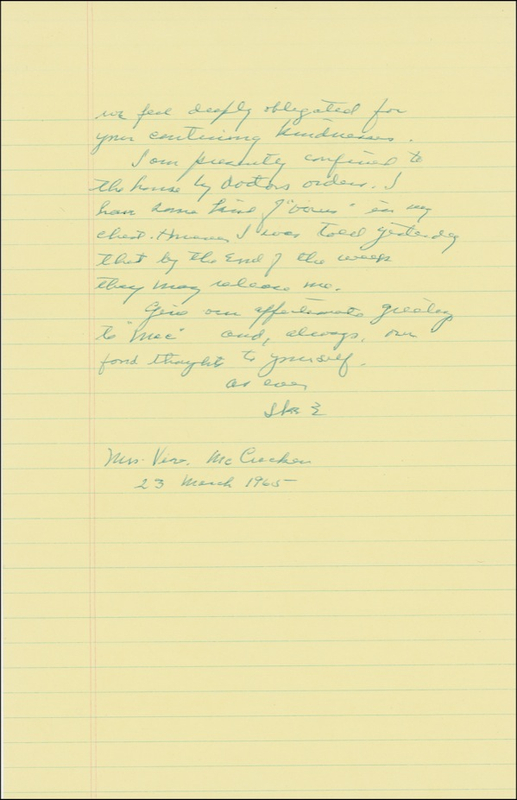 we feel deeply obligated for
your continuing kindnesses.
I am presently confined to
the house by doctors orders. I
have some kind of "virus" in my
chest. However I was told yesterday
that by the end of the week
they may release me.
Give our affectionate greeting
to "Mac" and, always, our
fond thought to yourself.
As ever
Ike E
Mrs. Vera McCracken
23 March 1965